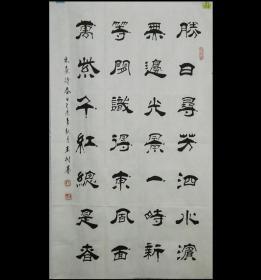 勝日尋芳泗水濱
無邊光景一時新
等閑識得東風面
萬紫千紅總是春
朱熹詩春日